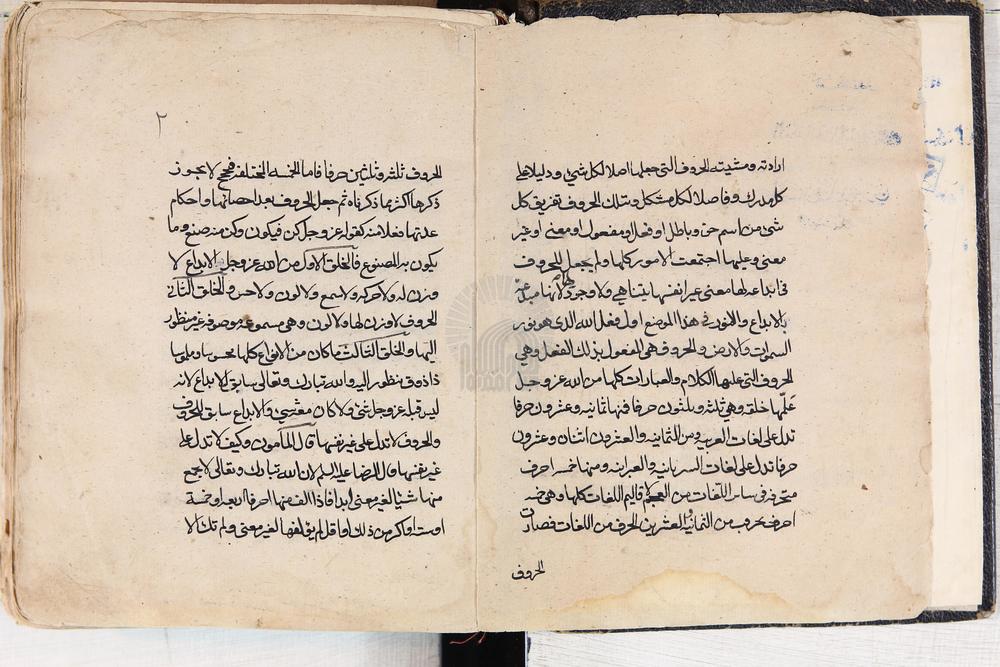 ارادته ومشيته الحروف التي جعلها اصلا لكل شيء ودليلا على
كل مدرك وفاصلا لكل مشكل وبتلك الحروف تفريق كل
شيء من اسم حق وباطل او فعل او مفعول او معنى او غير
معنى وعليها اجتمعت الامور كلها ولم يجعل للحروف
في ابداعه لها معنى غير انفسها يتناهى ولا وجود لها لانها مبدعة
بالابداع والنور في هذا الموضع اول فعل الله الذي هو نور
السموات والارض والحروف هي المفعول بذلك الفعل وهي
الحروف التي عليها الكلام والعبارات كلها من الله عز وجل
علّمها خلقه وهي ثلثة وثلثون حرفا فمنها ثمانية وعشرون حرفا
تدل على لغات العربية ومن الثمانية والعشرون اثنان وعشرون
حرفا تدل على لغات السريانية والعبرانية ومنها خمسة احرف
متحرفة في ساير اللغات من العجم لاقاليم اللغات كلها وهي خمسة
احرف تحرفت من الثمانية والعشرين الحرف من اللغات فصارت
الحروف
٢
الحروف ثلثة وثلثين حرفا فاما الخمسة المختلفة فحجج لا يجوز
ذكرها اكثر مما ذكرناه ثم جعل الحروف بعد احصائها واحكام
عدتها فعلا منه كقوله عز وجل كن فيكون وكن منه صنع وما
يكون به المصنوع فالخلق الاول من الله عز وجل الابداع لا
وزن له ولا حركة ولا سمع ولا لون ولا حس والخلق الثاني
الحروف لا وزن لها ولا لون وهي مسموعة موصوفة غير منظور
اليها والخلق الثالث ما كان من الانواع كلها محسوسا وملموسا
ذا ذوق منظور اليه والله تبارك وتعالى سابق الابداع لانه
ليس قبله عز وجل شيء ولا كان معه شيء والابداع سابق للحروف
والحروف لا تدل على غير نفسها قال المأمون وكيف لا تدل على
غير نفسها قال الرضا عليه السلم لان الله تبارك وتعالى لا يجمع
منها شيئا لغير معنى ابدا فاذا الف منها احرفا اربعة او خمسة
او ستة او اكثر من ذلك او اقل لم يؤلفها لغير معنى ولم تك الا